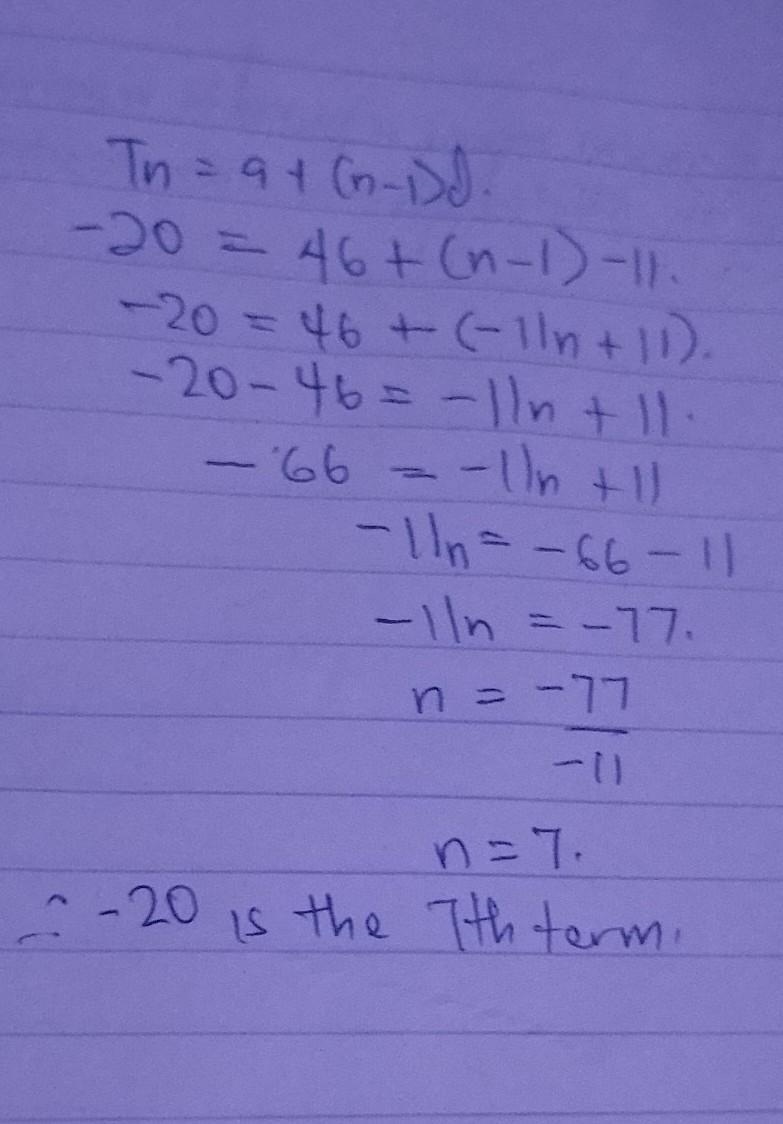 Tn = a + (n-1)d.
-20 = 46 + (n-1) -11.
-20 = 46 + (-11n + 11).
-20 - 46 = -11n + 11.
-66 = -11n + 11
-11n = -66 - 11
-11n = -77.
n = -77
-11
n = 7.
∴ -20 is the 7th term.